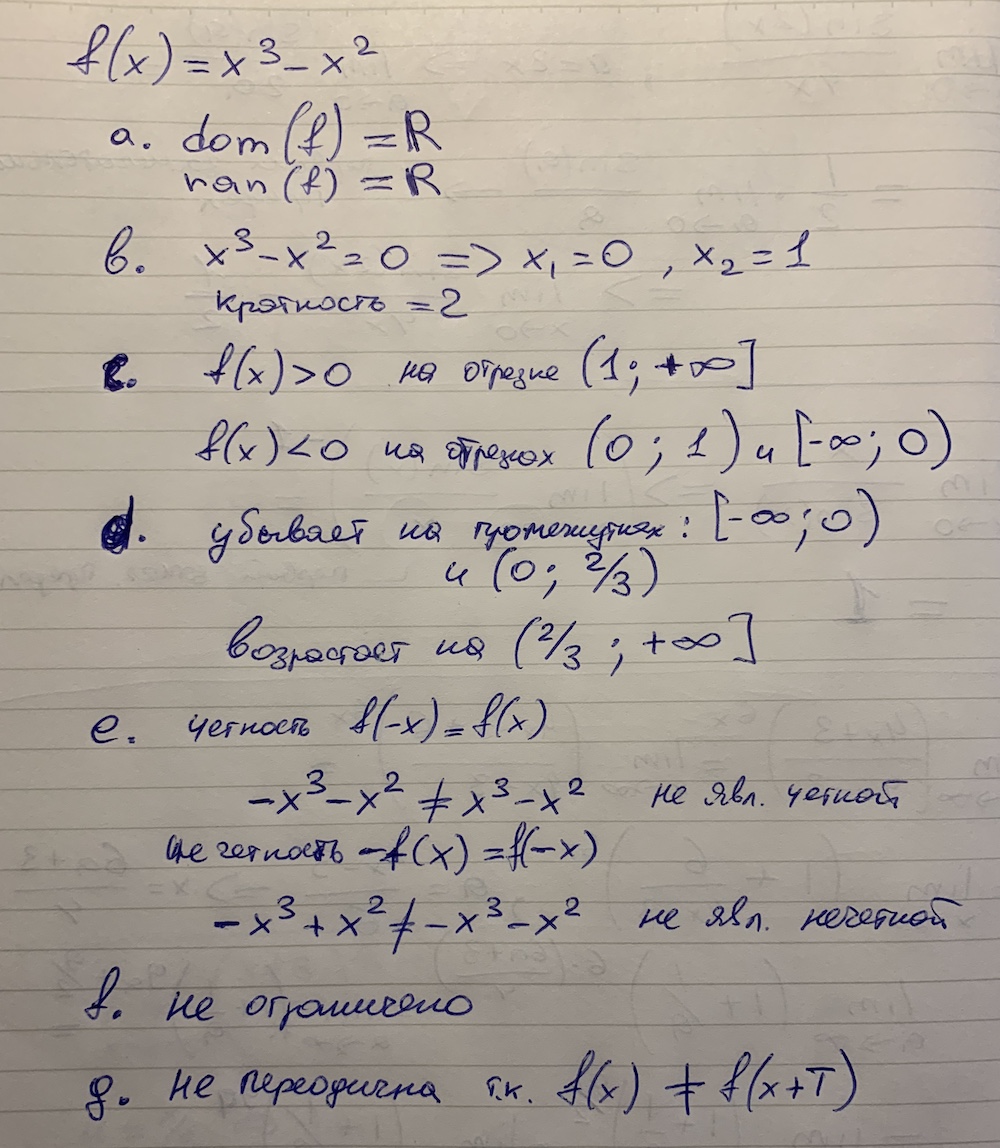 f(x) = x³ - x²
a. dom(f) = R
ran(f) = R
b. x³ - x² = 0 => x₁ = 0 , x₂ = 1
кратность = 2
c. f(x) > 0 на отрезке (1; +∞]
f(x) < 0 на отрезках (0 ; 1) и [-∞; 0)
d. убывает на промежутках : [-∞; 0)
и (0; 2/3)
возрастает на (2/3 ; +∞]
e. четность f(-x) = f(x)
-x³ - x² ≠ x³ - x² не явл. четной
нечетность -f(x) = f(-x)
-x³ + x² ≠ -x³ - x² не явл. нечетной
f. не ограничено
g. не переодична т.к. f(x) ≠ f(x+T)